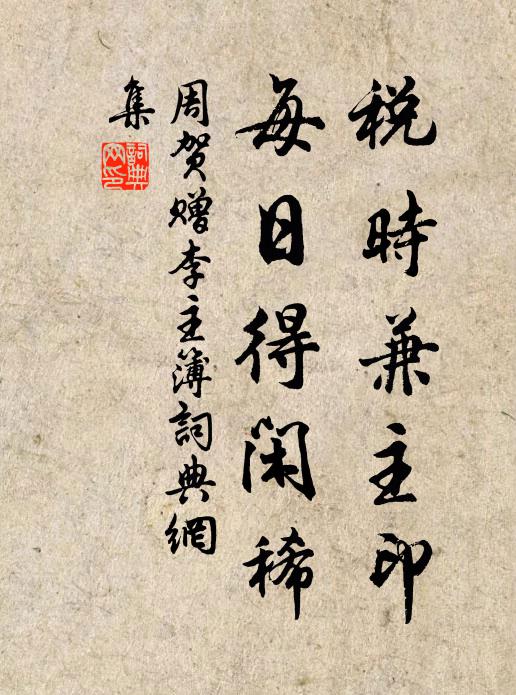 税時兼主印
每日得閑稀
周贺赠李主簿詞典網
集
詞典網印